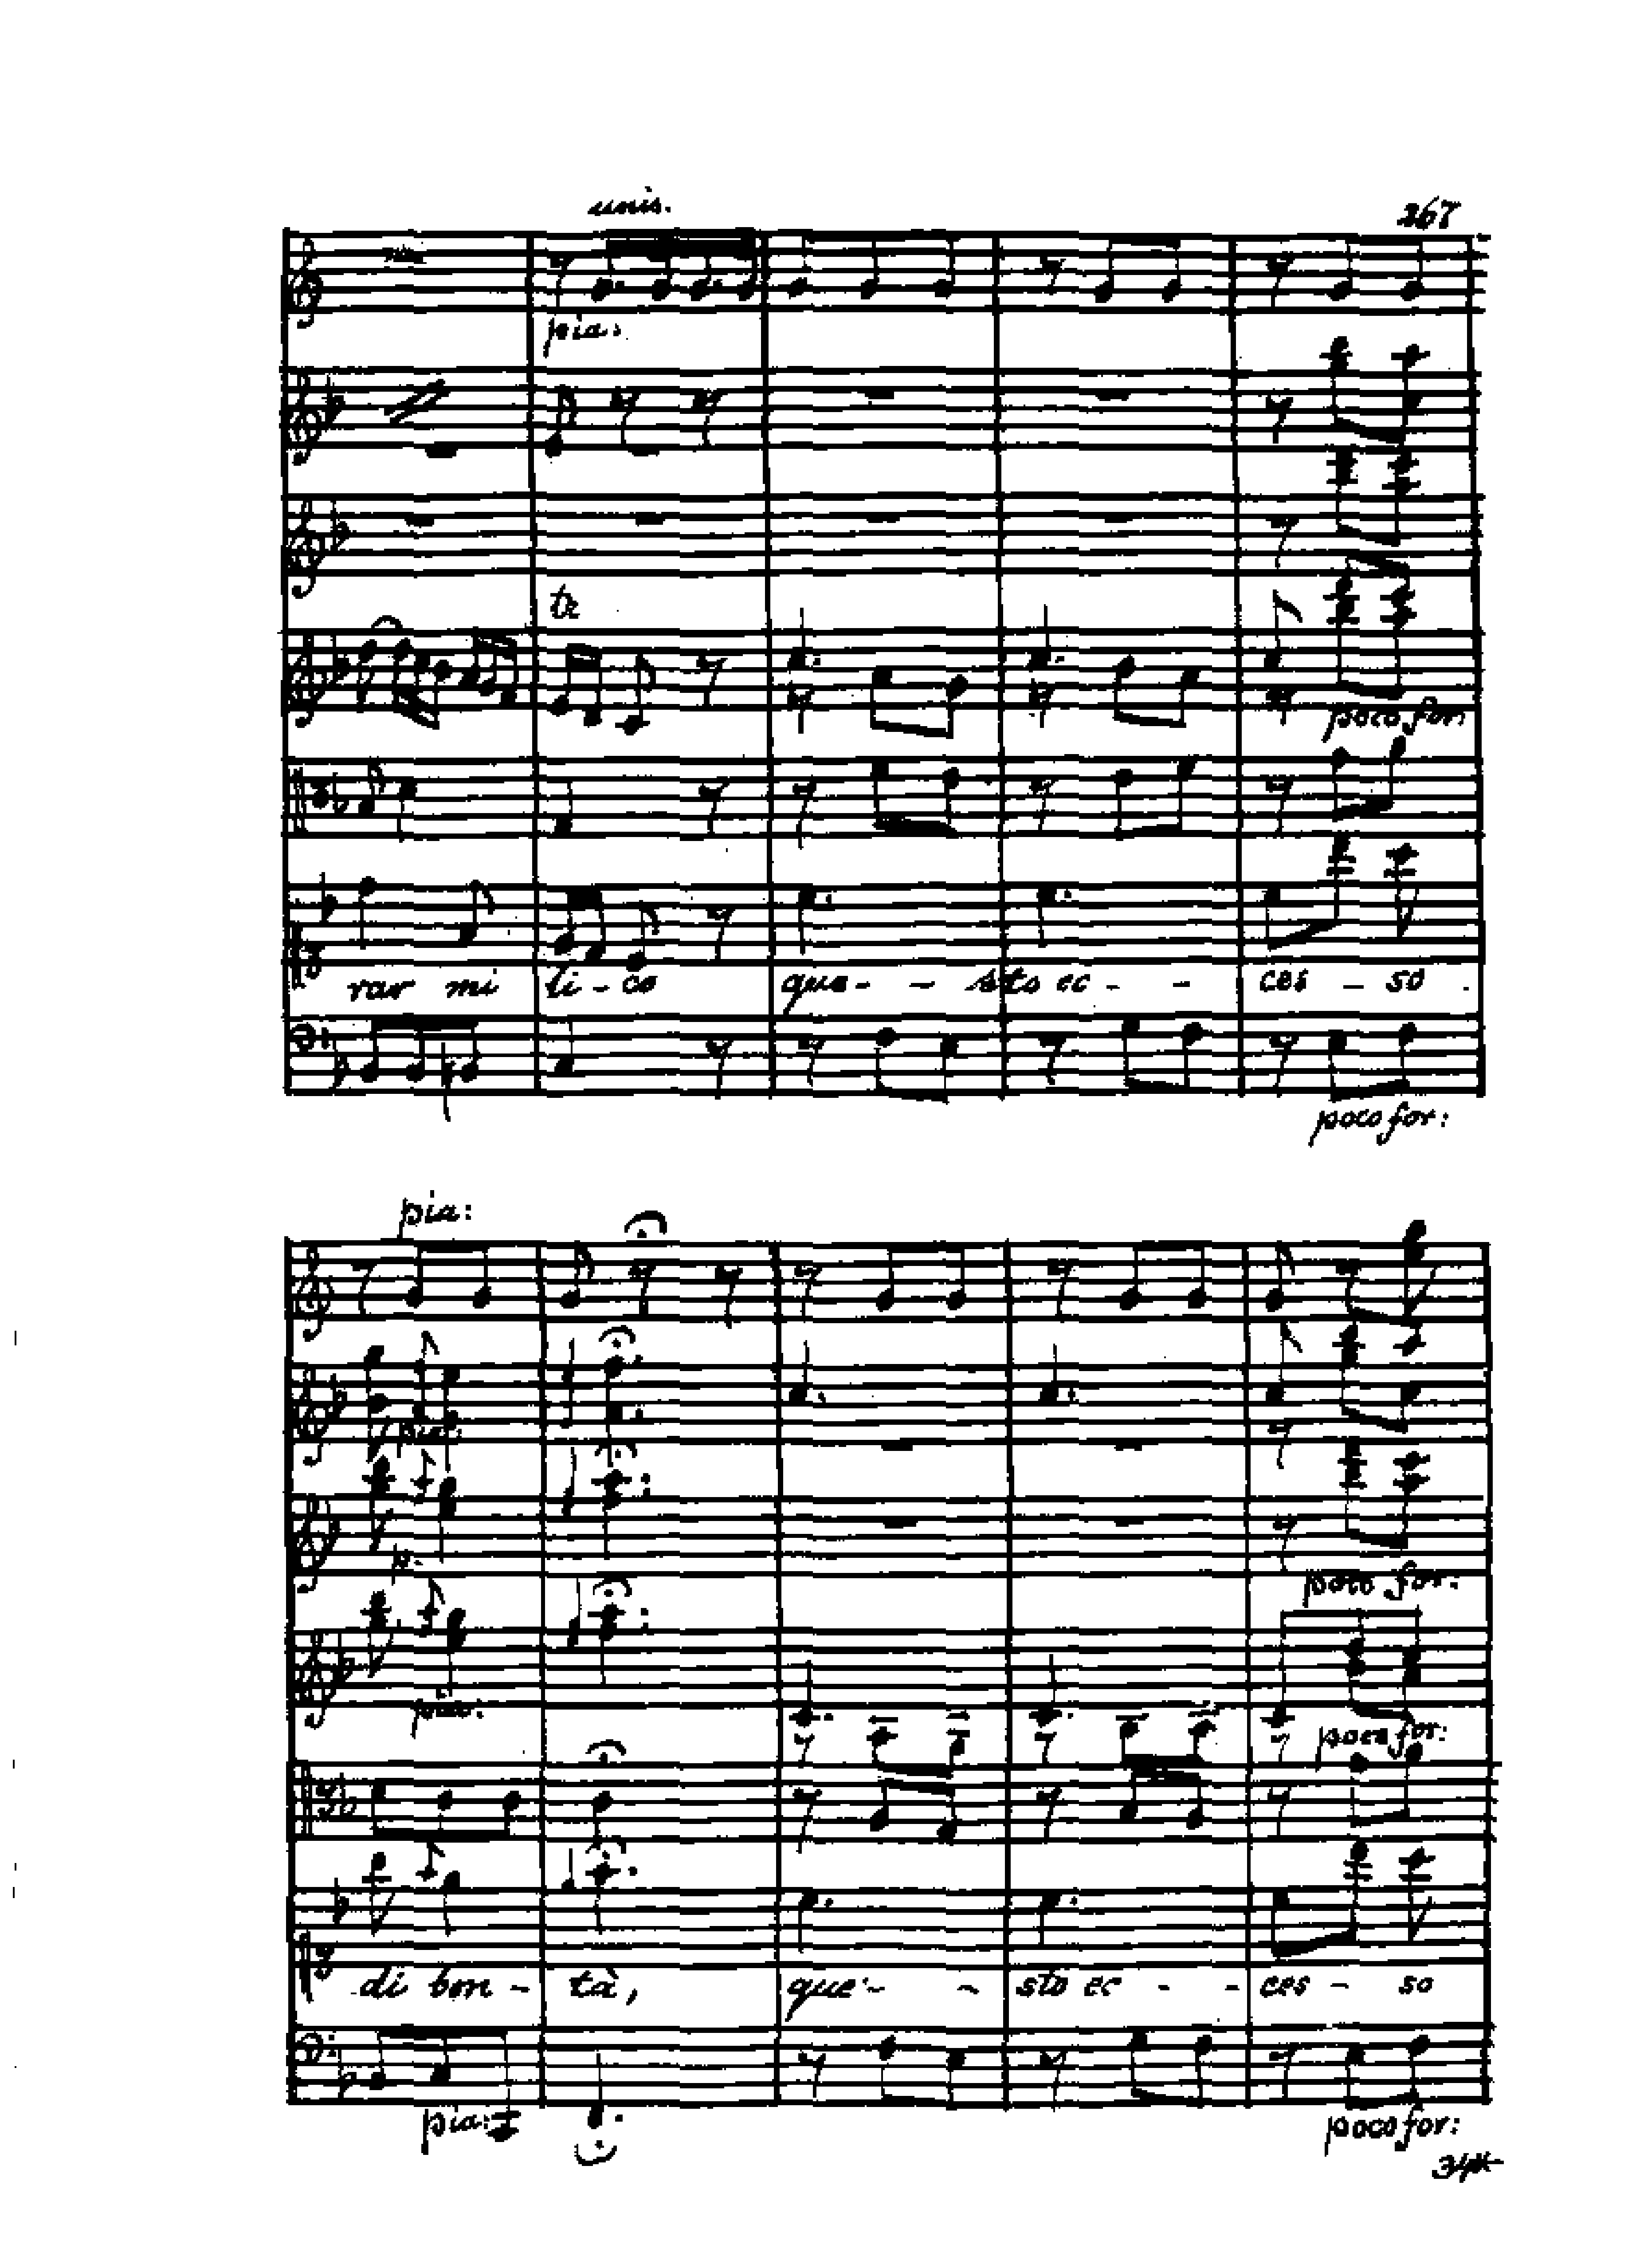 unis.
267
pia:
tr
poco for:
rar mi li - co que - - sto ec - - ces - so
poco for:
pia:
pia:
p.
poco for:
pia:
poco for:
di bon - tà, que - - sto ec - - ces - so
pia:
poco for:
34*